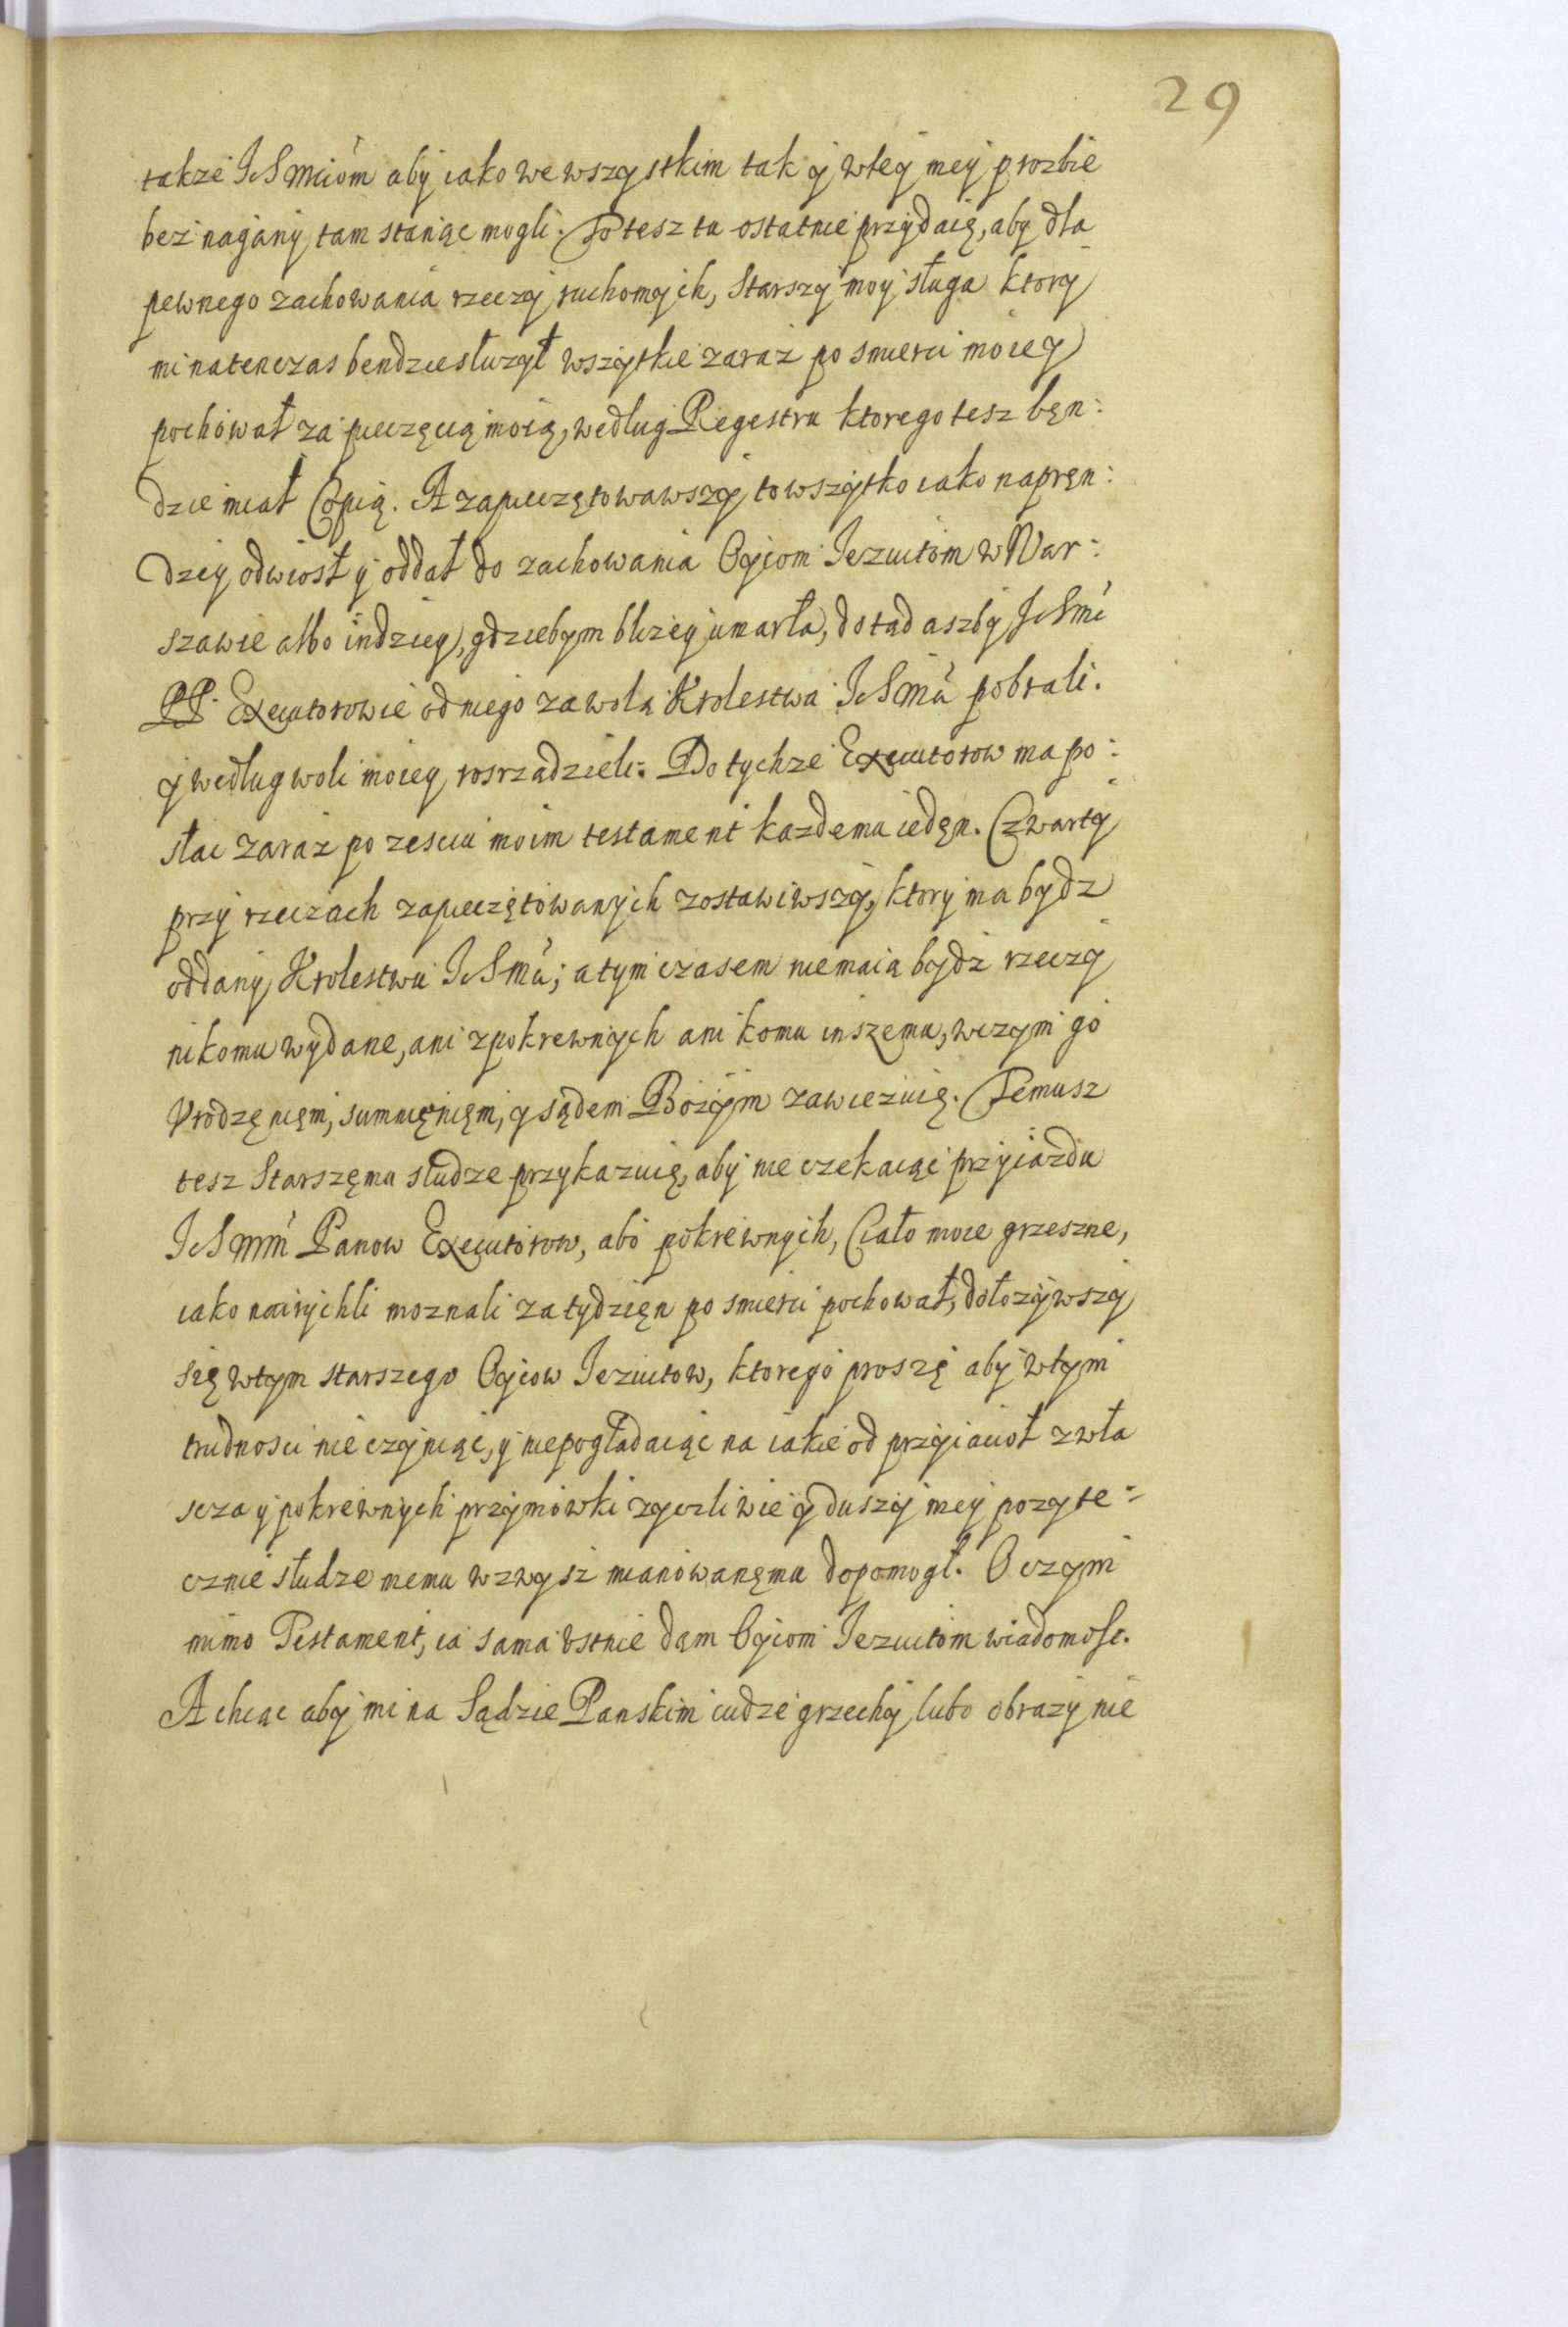 29
takze JchMciom aby iako we wszystkim tak y wtey mey prozbie
bez nagany tam stanąc mogli. To tesz tu ostatnie przydaię, aby dla
pewnego zachowania rzeczy ruchomych, Starszy moy sługa ktory
mi natenczas bendzie słuzył wszytkie zaraz po smierci moiey
pochował za pieczęcią moią, według Regestru ktorego tesz bęn:
dzie miał Copią. A zapieczętowawszy to wszytko iako napręn:
dzey odwiosł y oddał do zachowania Oycom Jezuitom w War:
szawie albo indziey, gdziebym blizey umarła, dotąd aszby JchMć
PP. Executorowie od niego za wolą Krolestwa JchMć pobrali.
y według woli moiey rosrządzieli. Do tychze Executorow ma po:
słac zaraz po zesciu moim testament kazdemu iedęn. Czwarty
przy rzeczach zapieczętowanych zostawiwszy, ktory ma bydz
oddany Krolestwu JchMć; a tym czasem niemaią bydz rzeczy
nikomu wydane, ani zpokrewnych ani komu inszemu, wczym go
Vrodzęnięm, sumnięnięm, y sądem Bozym zawiezuię. Temusz
tesz Starszęmu słudze przykazuię, aby nie czekaiąc przyiazdu
JchMM Panow Executorow, abo pokrewnych, Ciało moie grzeszne,
iako nairychli moznali za tydzięn po smierci pochował, dołozywszy
się wtym starszego Oycow Jezuitow, ktorego proszę aby wtym
trudnosci nie czyniąc, y niepoglądaiąc na iakie od przyiacioł zwła
scza y pokrewnych przymowki zyczliwie y duszy mey pozyte:
cznie słudze memu wzwysz mianowanęmu dopomogł. O czym
mimo Testament, ia sama vstnie dam Oycom Jezuitom wiadomosc.
A chcąc aby mi na Sądzie Panskim cudze grzechy lubo obrazy nie